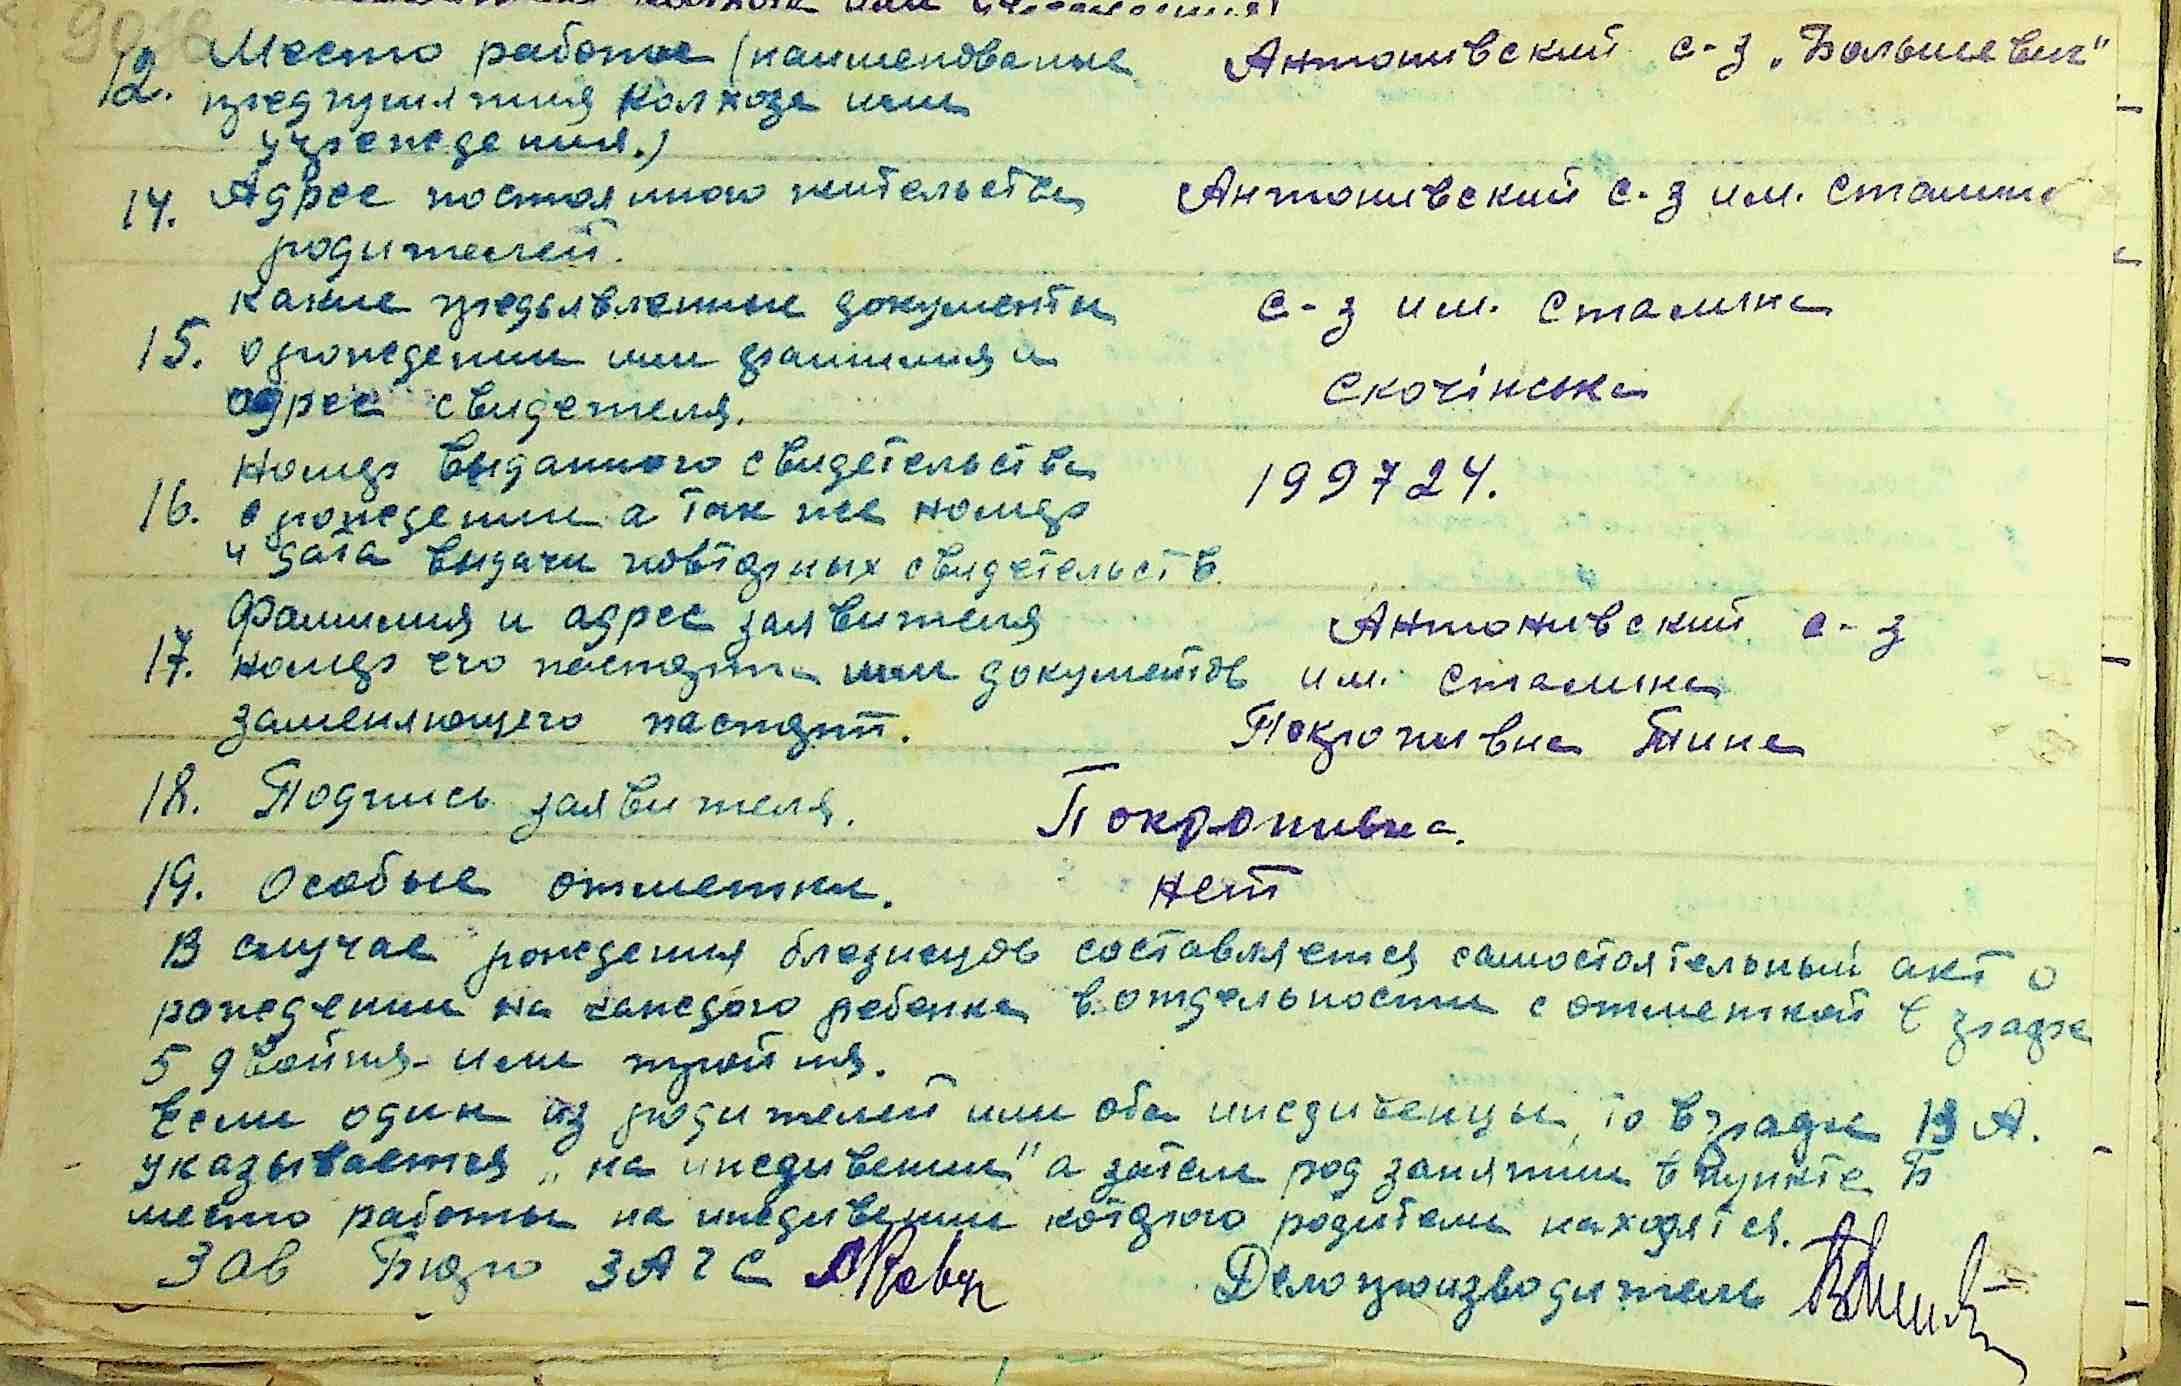 12. Место работы (наименование Антонивский с-з „Большевик"
предприятия колхоза или
учреждения.)
14. Адрес постоянного жительства Антонивский с-з им. Сталина
родителей.
какие предъявленные документы с-з им. Сталина
15. о рождении или фамилия и
адрес свидетеля. Скочінська
Номер выданного свидетельства 199724.
16. о рождении а так же номер
и дата выдачи повторных свидетельств
Фамилия и адрес заявителя Антонивский с-з
17. номер его паспорта или документов им. Сталина
заменяющего паспорт. Покропивна Тина
18. Подпись заявителя. Покропивна.
19. Особые отметки. нет
В случае рождения близнецов составляется самостоятельный акт о
рождении на каждого ребенка в отдельности с отметкой в графе
5 двойня или тройня.
Если один из родителей или оба иждивенцы, то в графе 13 А.
указывается „на иждивении" а затем род занятии в пункте Б
место работы на иждивении которого родители находятся.
Зав Бюро ЗАГС Делопроизводитель